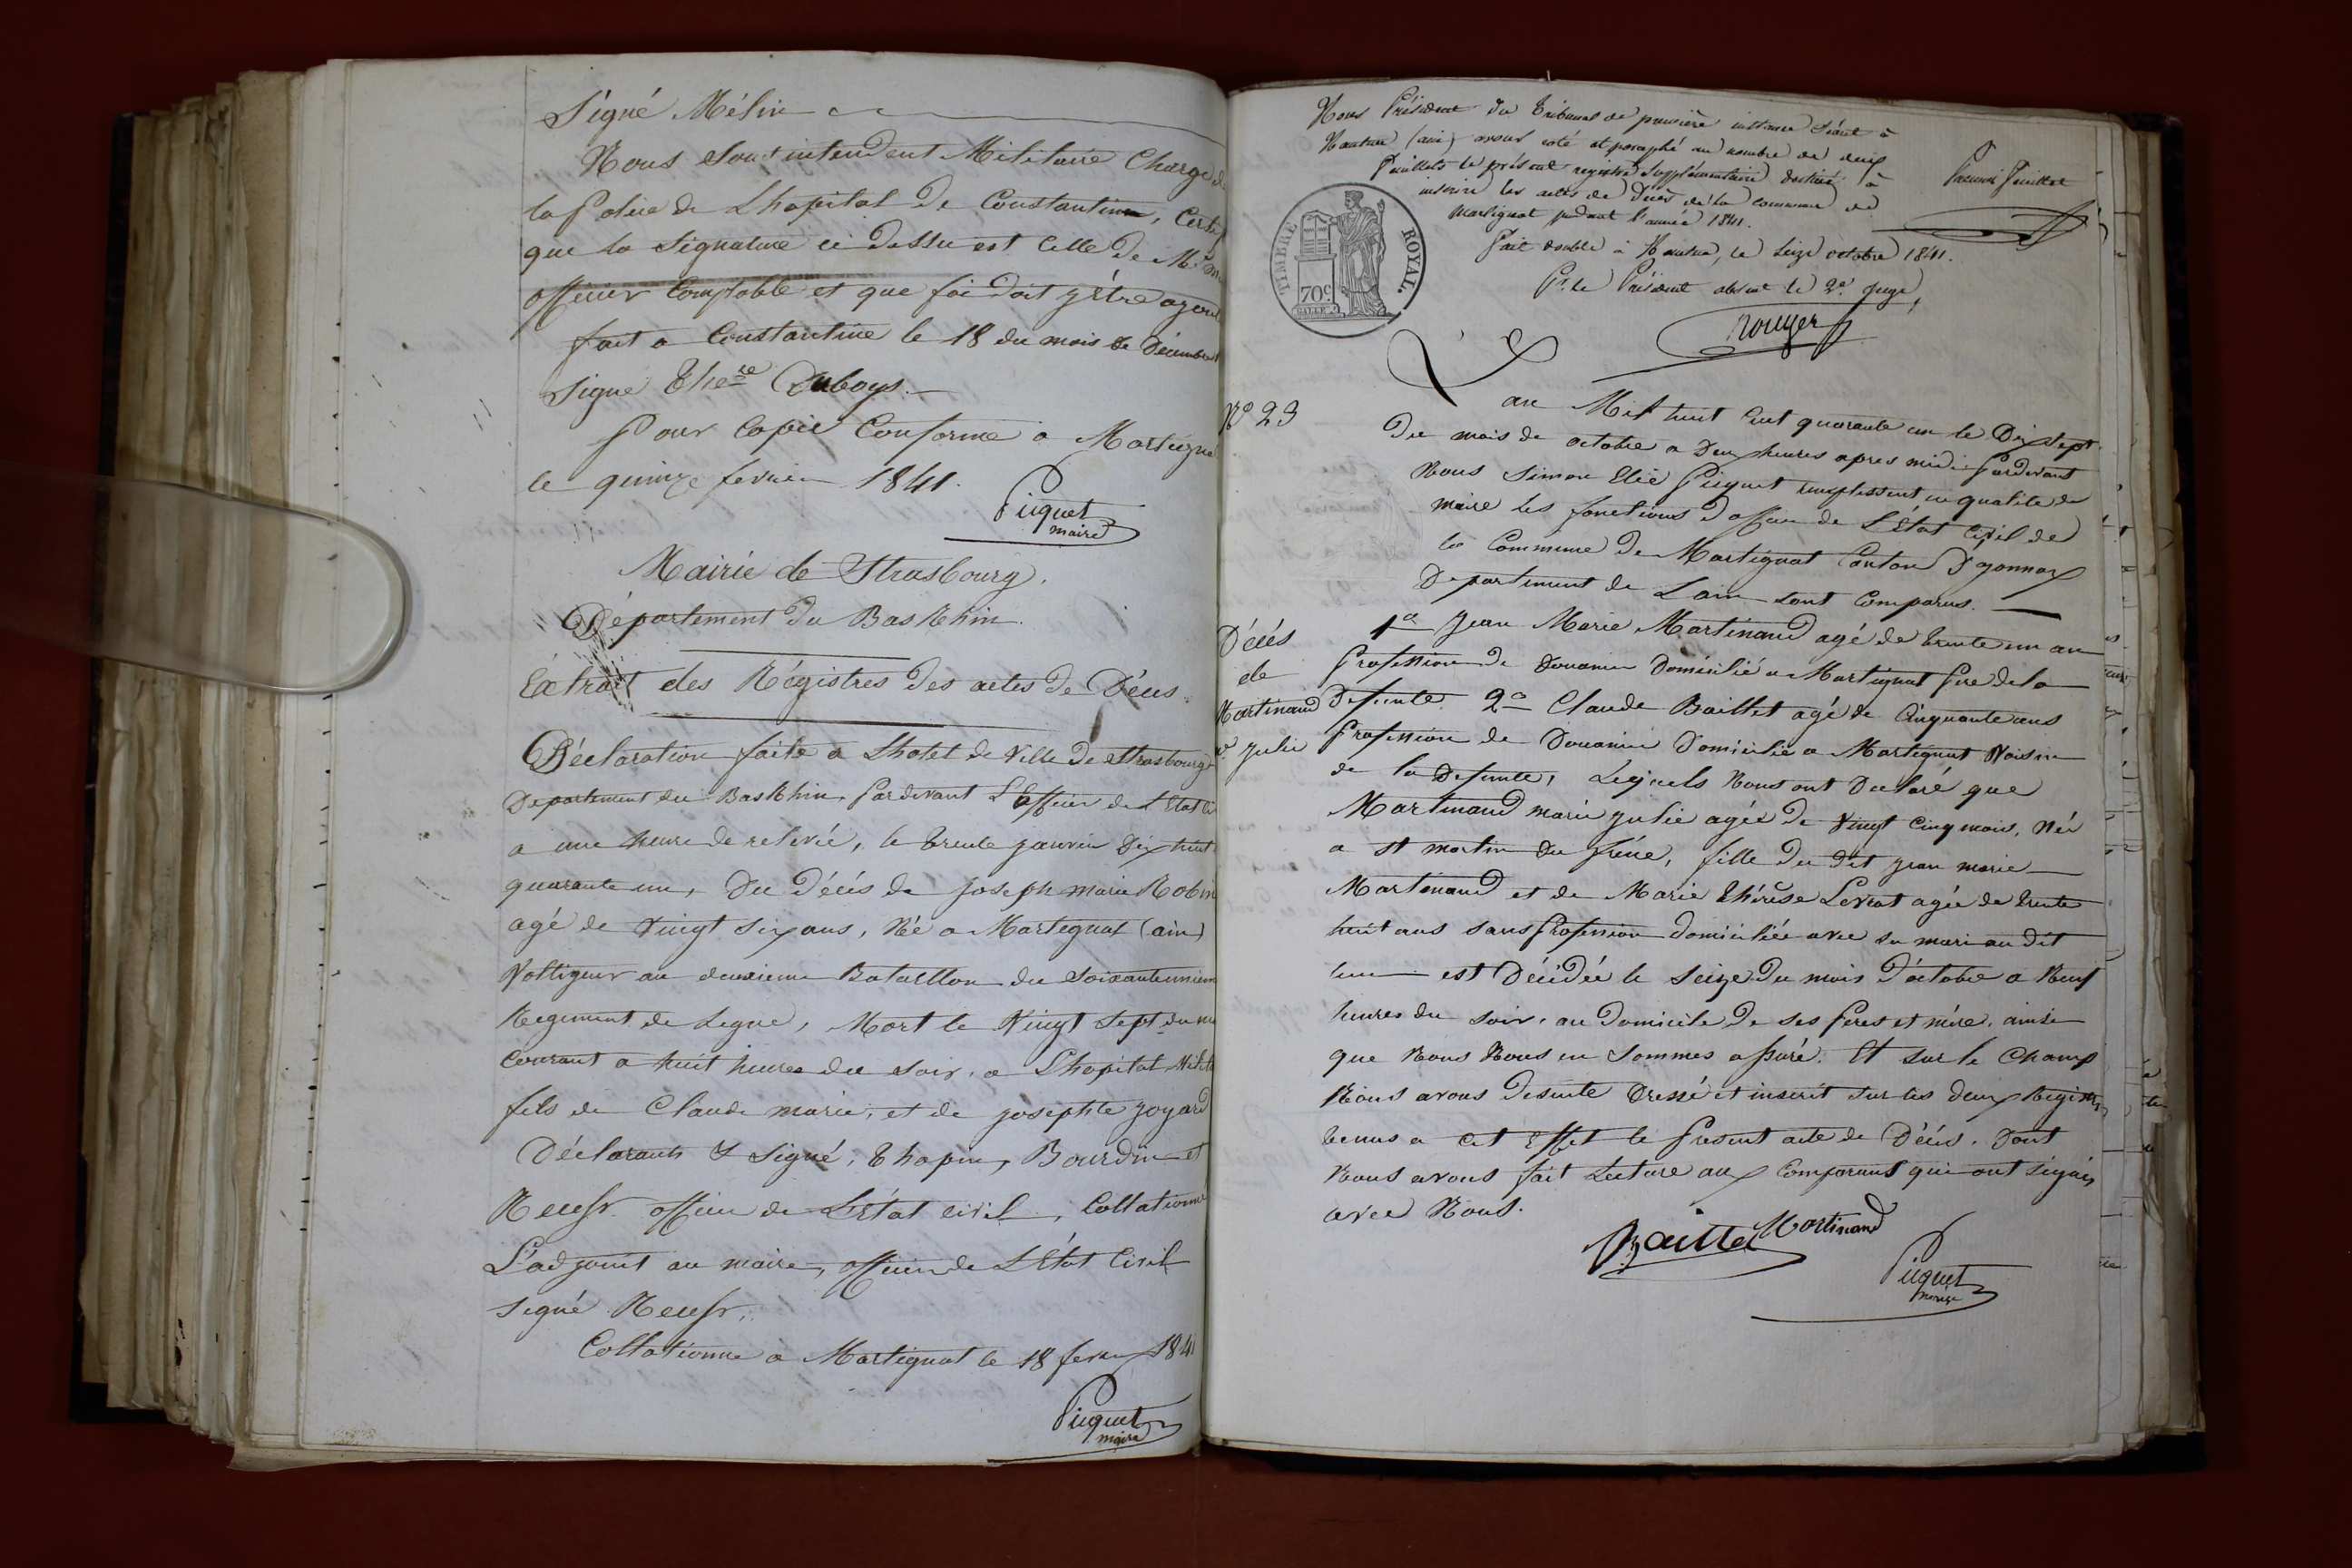 Signé Mélin
Nous Sous intendent Militaire Chargé de
la Police de Lhopital de Constantine, Certif
que la Signature ci dessu est Celle de Mr
officier Comptable et que foi doit y être ajout
fait a Constantine le 18 du mois de Décembre
Signé Duboys.
Pour Copie Conforme a Martigna
le quinze fevrier 1841.
Picquet
maire
Mairie de Strasbourg.
Département du Bas Rhin.
Extrait des Régistres des actes de Décès.
Déclaration faite a Lhotel de Ville de Strasbourg
Departement du Bas Rhin. Pardevant L'officier de L'Etat Ci
a une heure de relevée, le trente janvier Dix huit
quarante un, Du Décés de Joseph marie Robin
agé de Vingt Six ans, Né a Martegnat (ain)
Voltigeur au deuxieme Bataillon du Soixante unieme
Regiment de Legne, Mort le Vingt Sept du m
Courant a huit heures du soir. a Lhopital Milit
fils de Claude marie, et de josephte joyard
Déclarants & Signé, Chapin, Bourdin et
Neussr officier de L'état civil, Collationné
L'adjoint au maire, officier de L'Etat Civil
signé Neussr.
Collationné a Martignat le 18 fevrier 1841
Picquet
maire
Nous Président du Tribunal de première instance séant à
Nantua (ain) avons coté et paraphé au nombre de deux
feuillets le présent registre supplémentaire destiné à
inscrire les actes de Décès de la commune de
Martignat pendant l'année 1841.
Fait double à Nantua, le Seize octobre 1841.
Pr. le Président absent le 2e. Juge,
Rouyer
Premier Feuillet
TIMBRE ROYAL.
70c
N° 23
L'an Mil huit Cent quarante un le Dix Sept
Du mois de octobre a Deux heures apres midi Pardevant
Nous Simon Elie Picquet remplissent en qualite de
maire les fonctions d'officier de L'Etat Civil de
la Commune de Martignat Canton D'oyonnax
Departement de L'ain sont Comparus.
Décés
de
Martinand
Me Julie
1° Jean Marie Martinand agé de trente un an
Profession de Douanier Domicilié a Martignat Pere de la
Defunte 2° Claude Baillet agé de Cinquante ans
Profession de Douanier Domicilié a Martignat Voisin
de la Defunte, Lesquels Nous ont Declaré que
Martinand marie julie agée de Vingt Cinq mois, Née
a St martin du frêne, fille du dit jean marie
Martinand et de Marie Thérèse Levrat agée de trente
huit ans sans Profession domiciliée avec su mari au dit
lieu est Décédée le Seize Du mois D'octobre a Neuf
heures du soir, au Domicile de ses Peres et mére. ainsi
que Nous Nous en Sommes assuré. Et sur le Champ
Nous avons Desuite Dressé et inscrit sur les Deux Registres
tenus a Cet Effet le Present acte de Décés. Dont
Nous avons fait Lecture aux Comparans qui ont signés
avec Nous.
Baillet Martinand
Picquet
maire